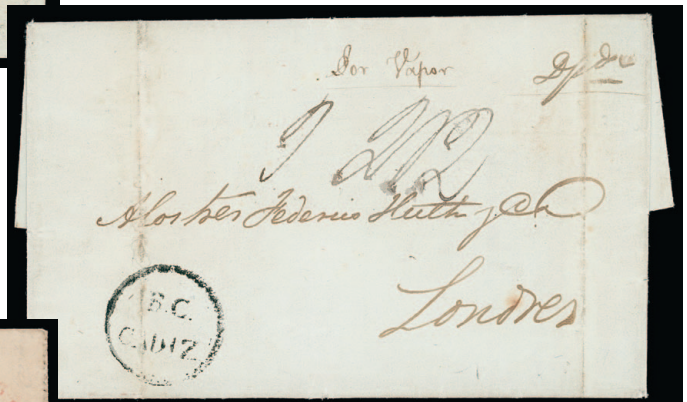 Por Vapor
2/2
A los Sres Federico Huth y Ca
Londres
B.C.
CADIZ